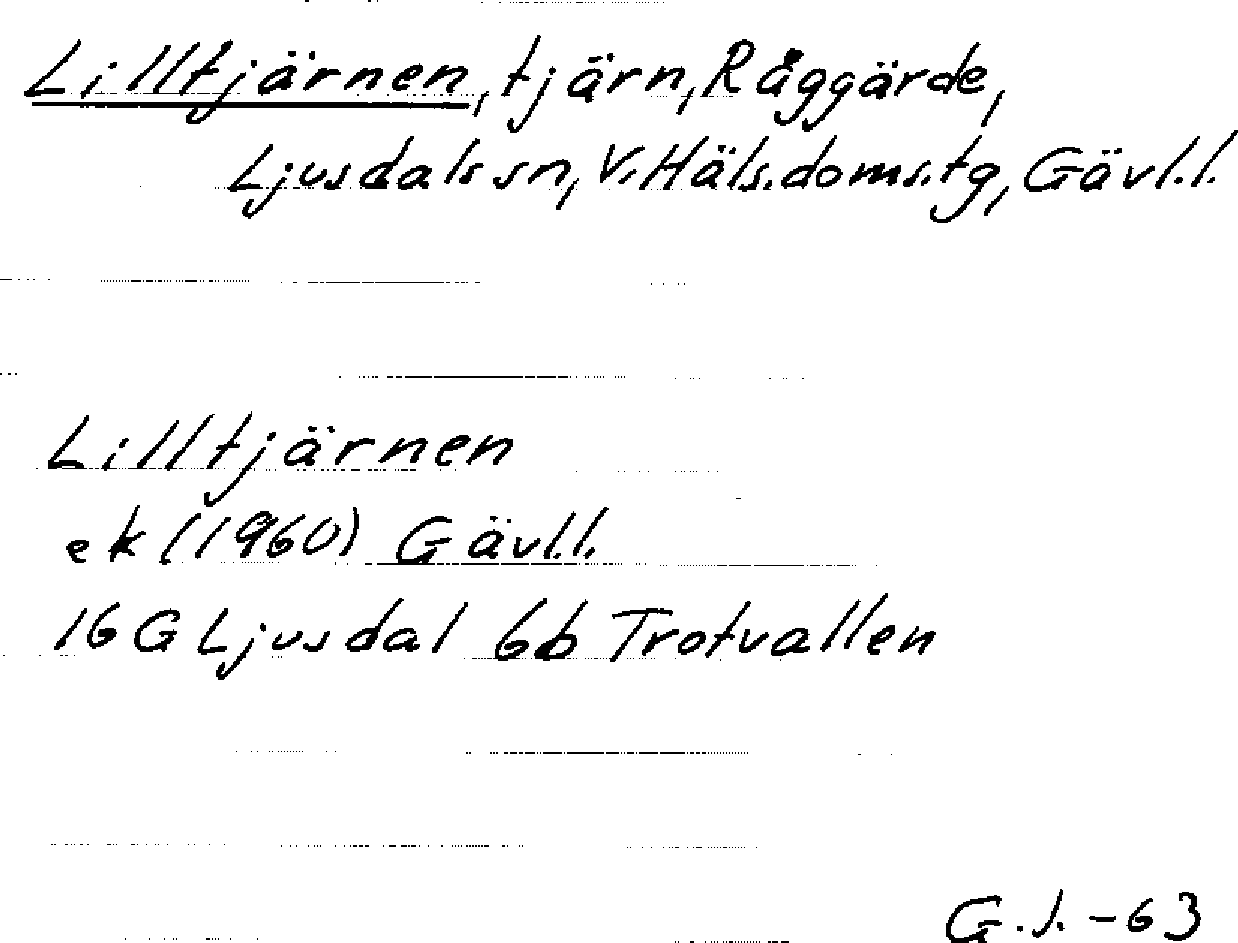 Lilltjärnen, tjärn, Råggärde,
Ljusdals sn, V. Häls. doms. tg, Gävl. l.
Lilltjärnen
ek (1960) Gävl. l.
16 G Ljusdal 6b Trotvallen
G. J. -63